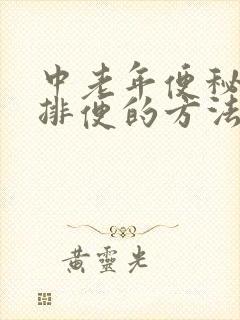 中老年便秘
排便的方法
黄灵光